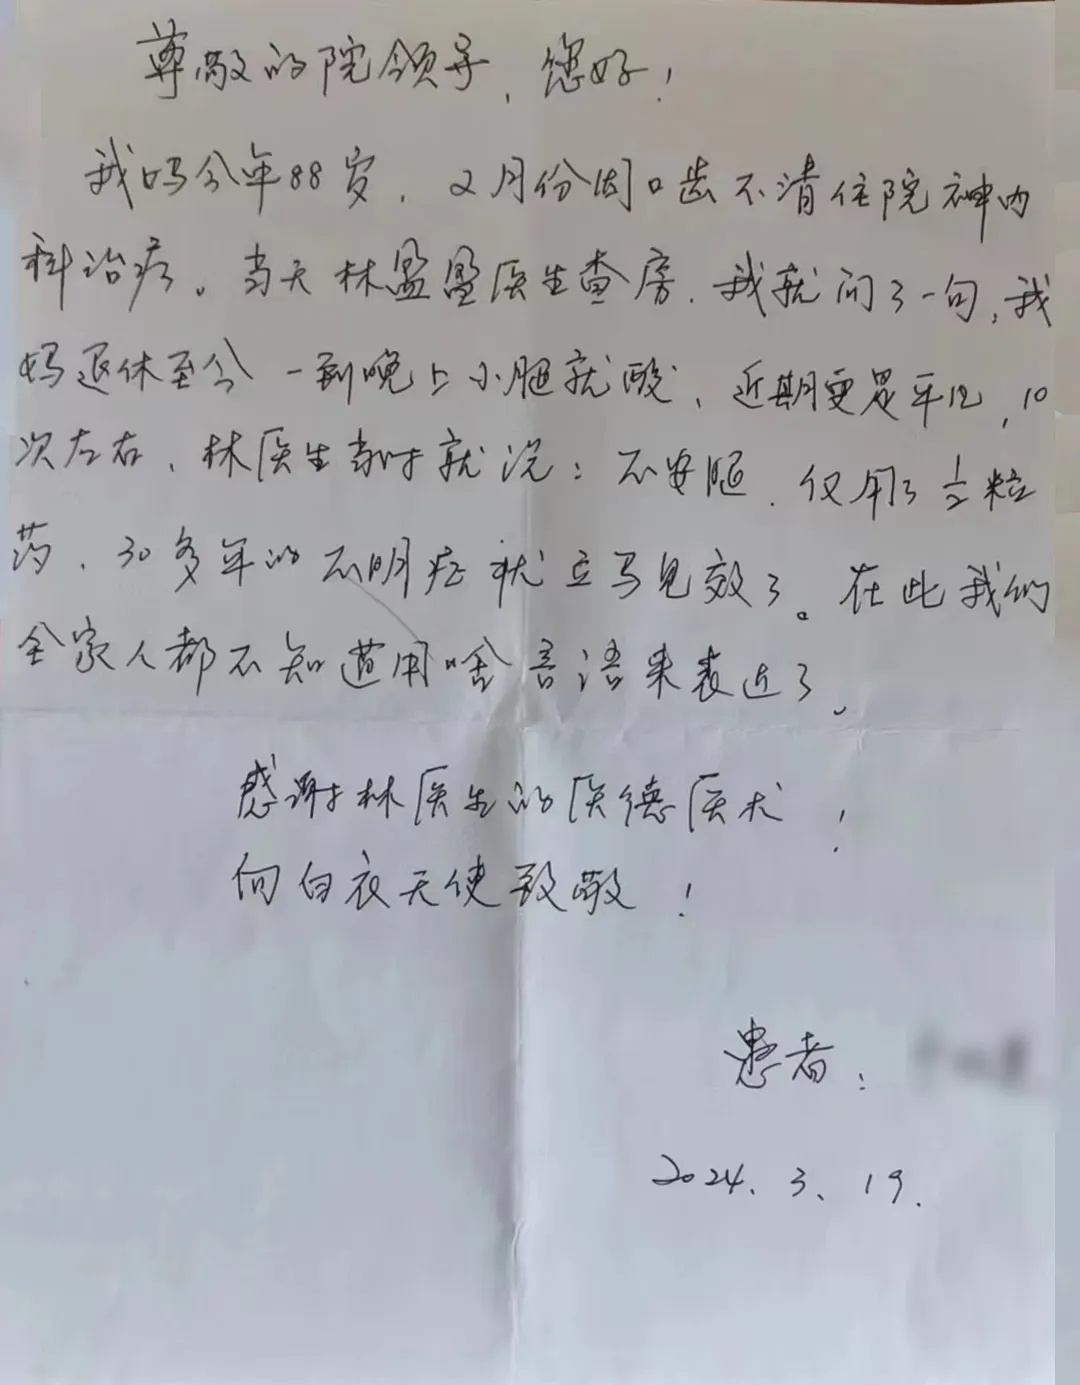 尊敬的院领导，您好！
我妈今年88岁，2月份因口齿不清住院神内
科治疗。当天林盈盈医生查房，我就问了一句，我
妈退休至今一到晚上小腿就酸，近期更是平
10
次左右，林医生当时就说：不安腿，仅用了1/2粒
药，30多年的不明症就立马见效了。在此我们
全家人都不知道用啥言语来表达了。
感谢林医生的医德医术！
向白衣天使致敬！
患者：
2024.3.19.